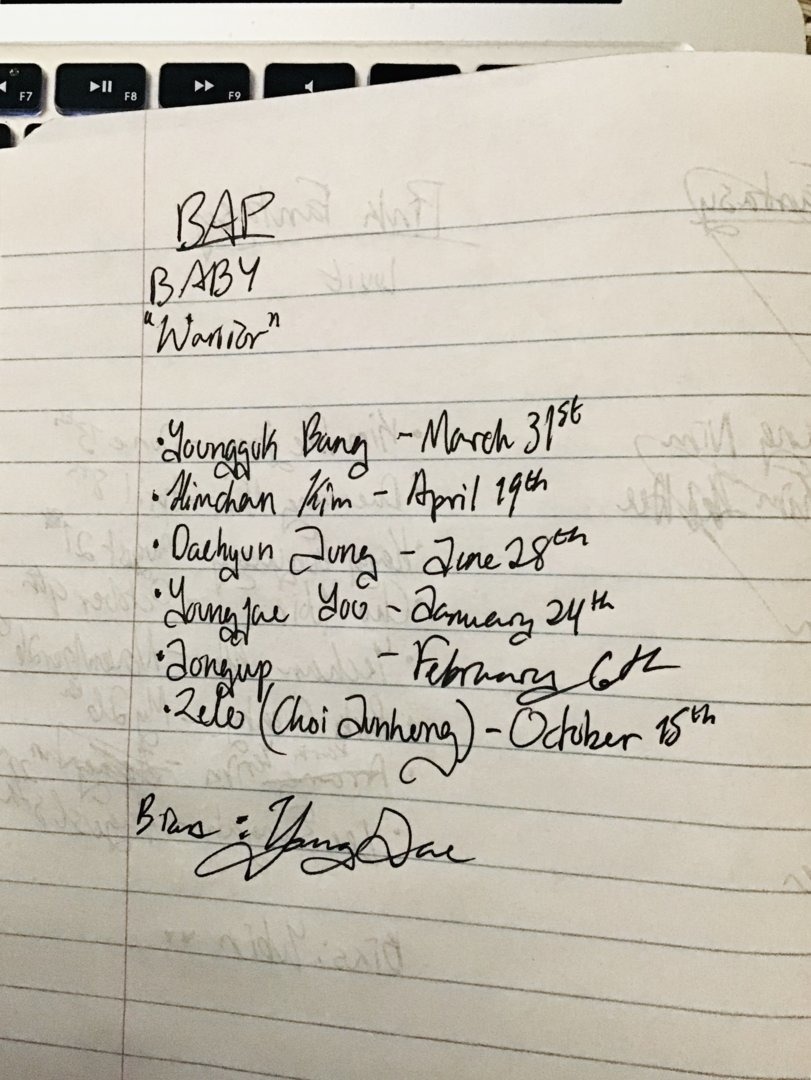 F7
F8
F9
BAP
BABY
"Warrior"
·Youngguk Bang - March 31st
·Himchan Kim - April 19th
·Daehyun Jung - June 28th
·Youngjae Yoo - January 24th
·Jongup - February 6th
·Zelo (Choi Junhong) - October 15th
Bias : Young Jae